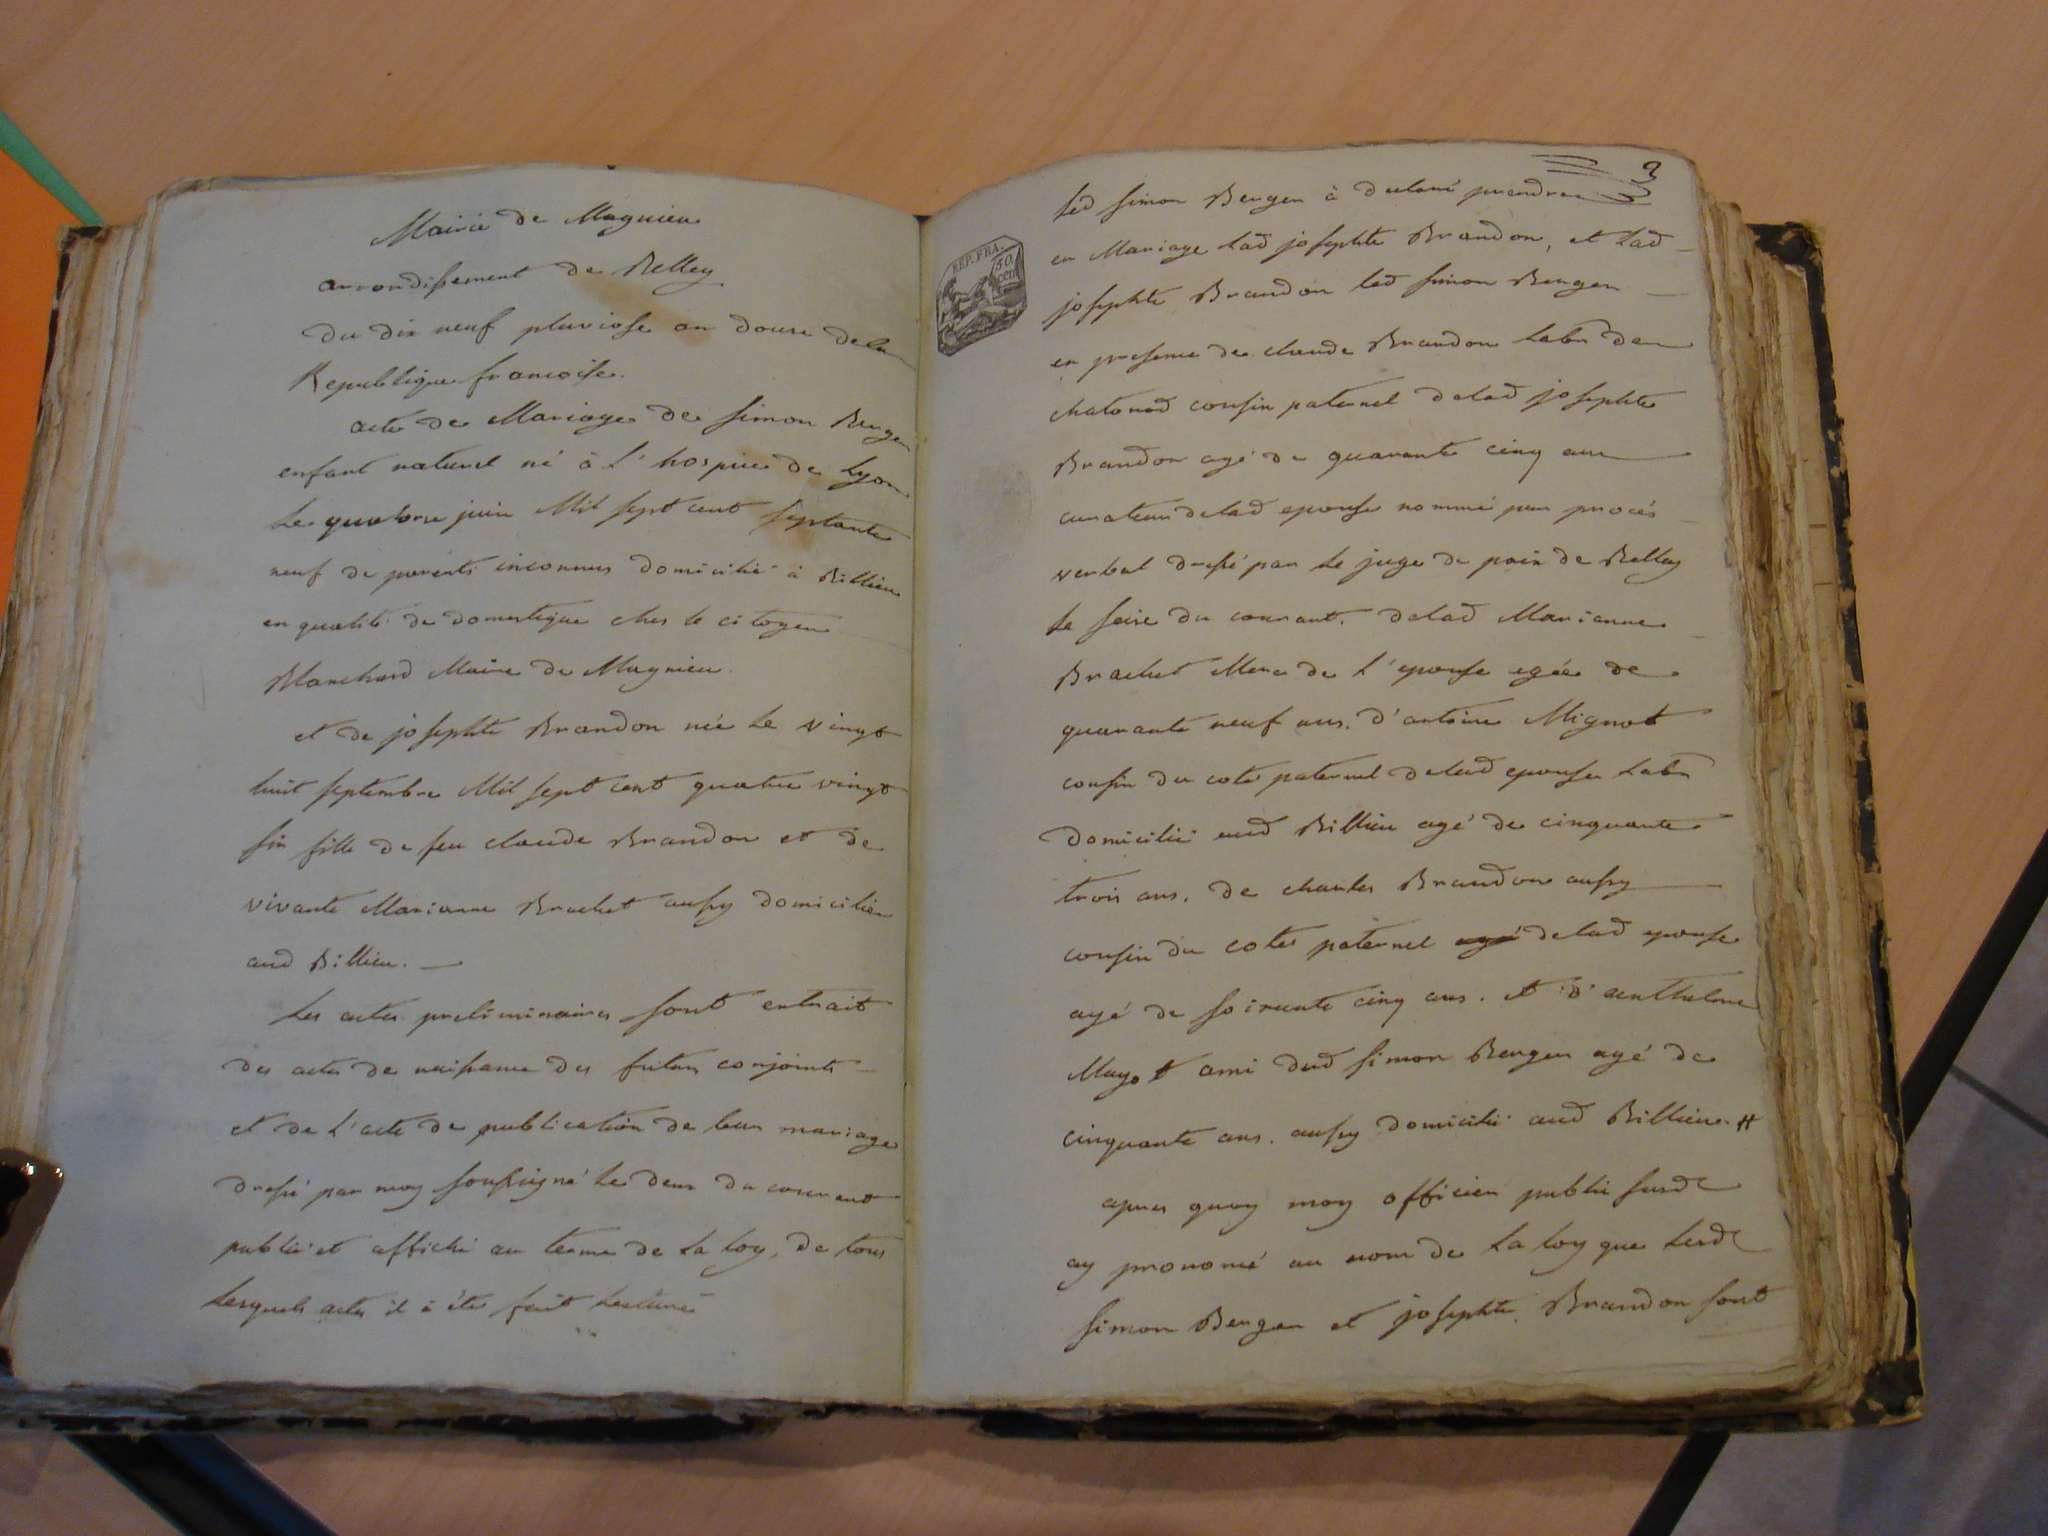 Mairie de Magnieu
arrondissement de Belley
du dix neuf pluviose an douze de la
Republique francoise.
acte de Mariage de simon Berger
enfant naturel né à l'hospice de Lyon
le quatorze juin Mil sept cent septante
neuf de parents inconnus domicilié à Billieu
en qualité de domestique ches le citoyen
Blanchard Maire de Magnieu
et de josephte Brandon née le vingt
huit septembre Mil sept cent quatre vingt
six fille de feu claude Brandon et de
vivante Marianne Brachet aussy domiciliée
aud Billieu. —
Les actes preliminaires sont extrait
des actes de naissance des futurs conjoints
et de l'acte de publication de leur mariage
dressé par moy soussigné le deux du courant
publié et affiché au terme de la loy, de tous
lesquels actes il à été fait lecture
3
led simon Berger à declaré prendre
en Mariage lad josephte Brandon, et lad
josephte Brandon led simon Berger
en presence de claude Brandon labr de
chatonod cousin paternel delad josephte
Brandon agé de quarante cinq ans
curateur delad epouse nommé par procés
verbal dressé par le juge de paix de Belley
le seize du courant. delad Marianne
Brachet Mere de l'epouse egée de
quarante neuf ans. d'antoine Mignot
cousin du coté paternel delad epouse labr
domicilié aud Billieu agé de cinquante
trois ans, de charles Brandon aussy
cousin du coté paternel agé delad epouse
agé de soixante cinq ans. et d'anthelme
Mayot ami dud simon Berger agé de
cinquante ans. aussy domicilié aud Billieu. #
apres quoy moy officier public susd
ay prononcé au nom de la loy que lesd
simon Berger et josephte Brandon sont
REP. FRA.
50
cen